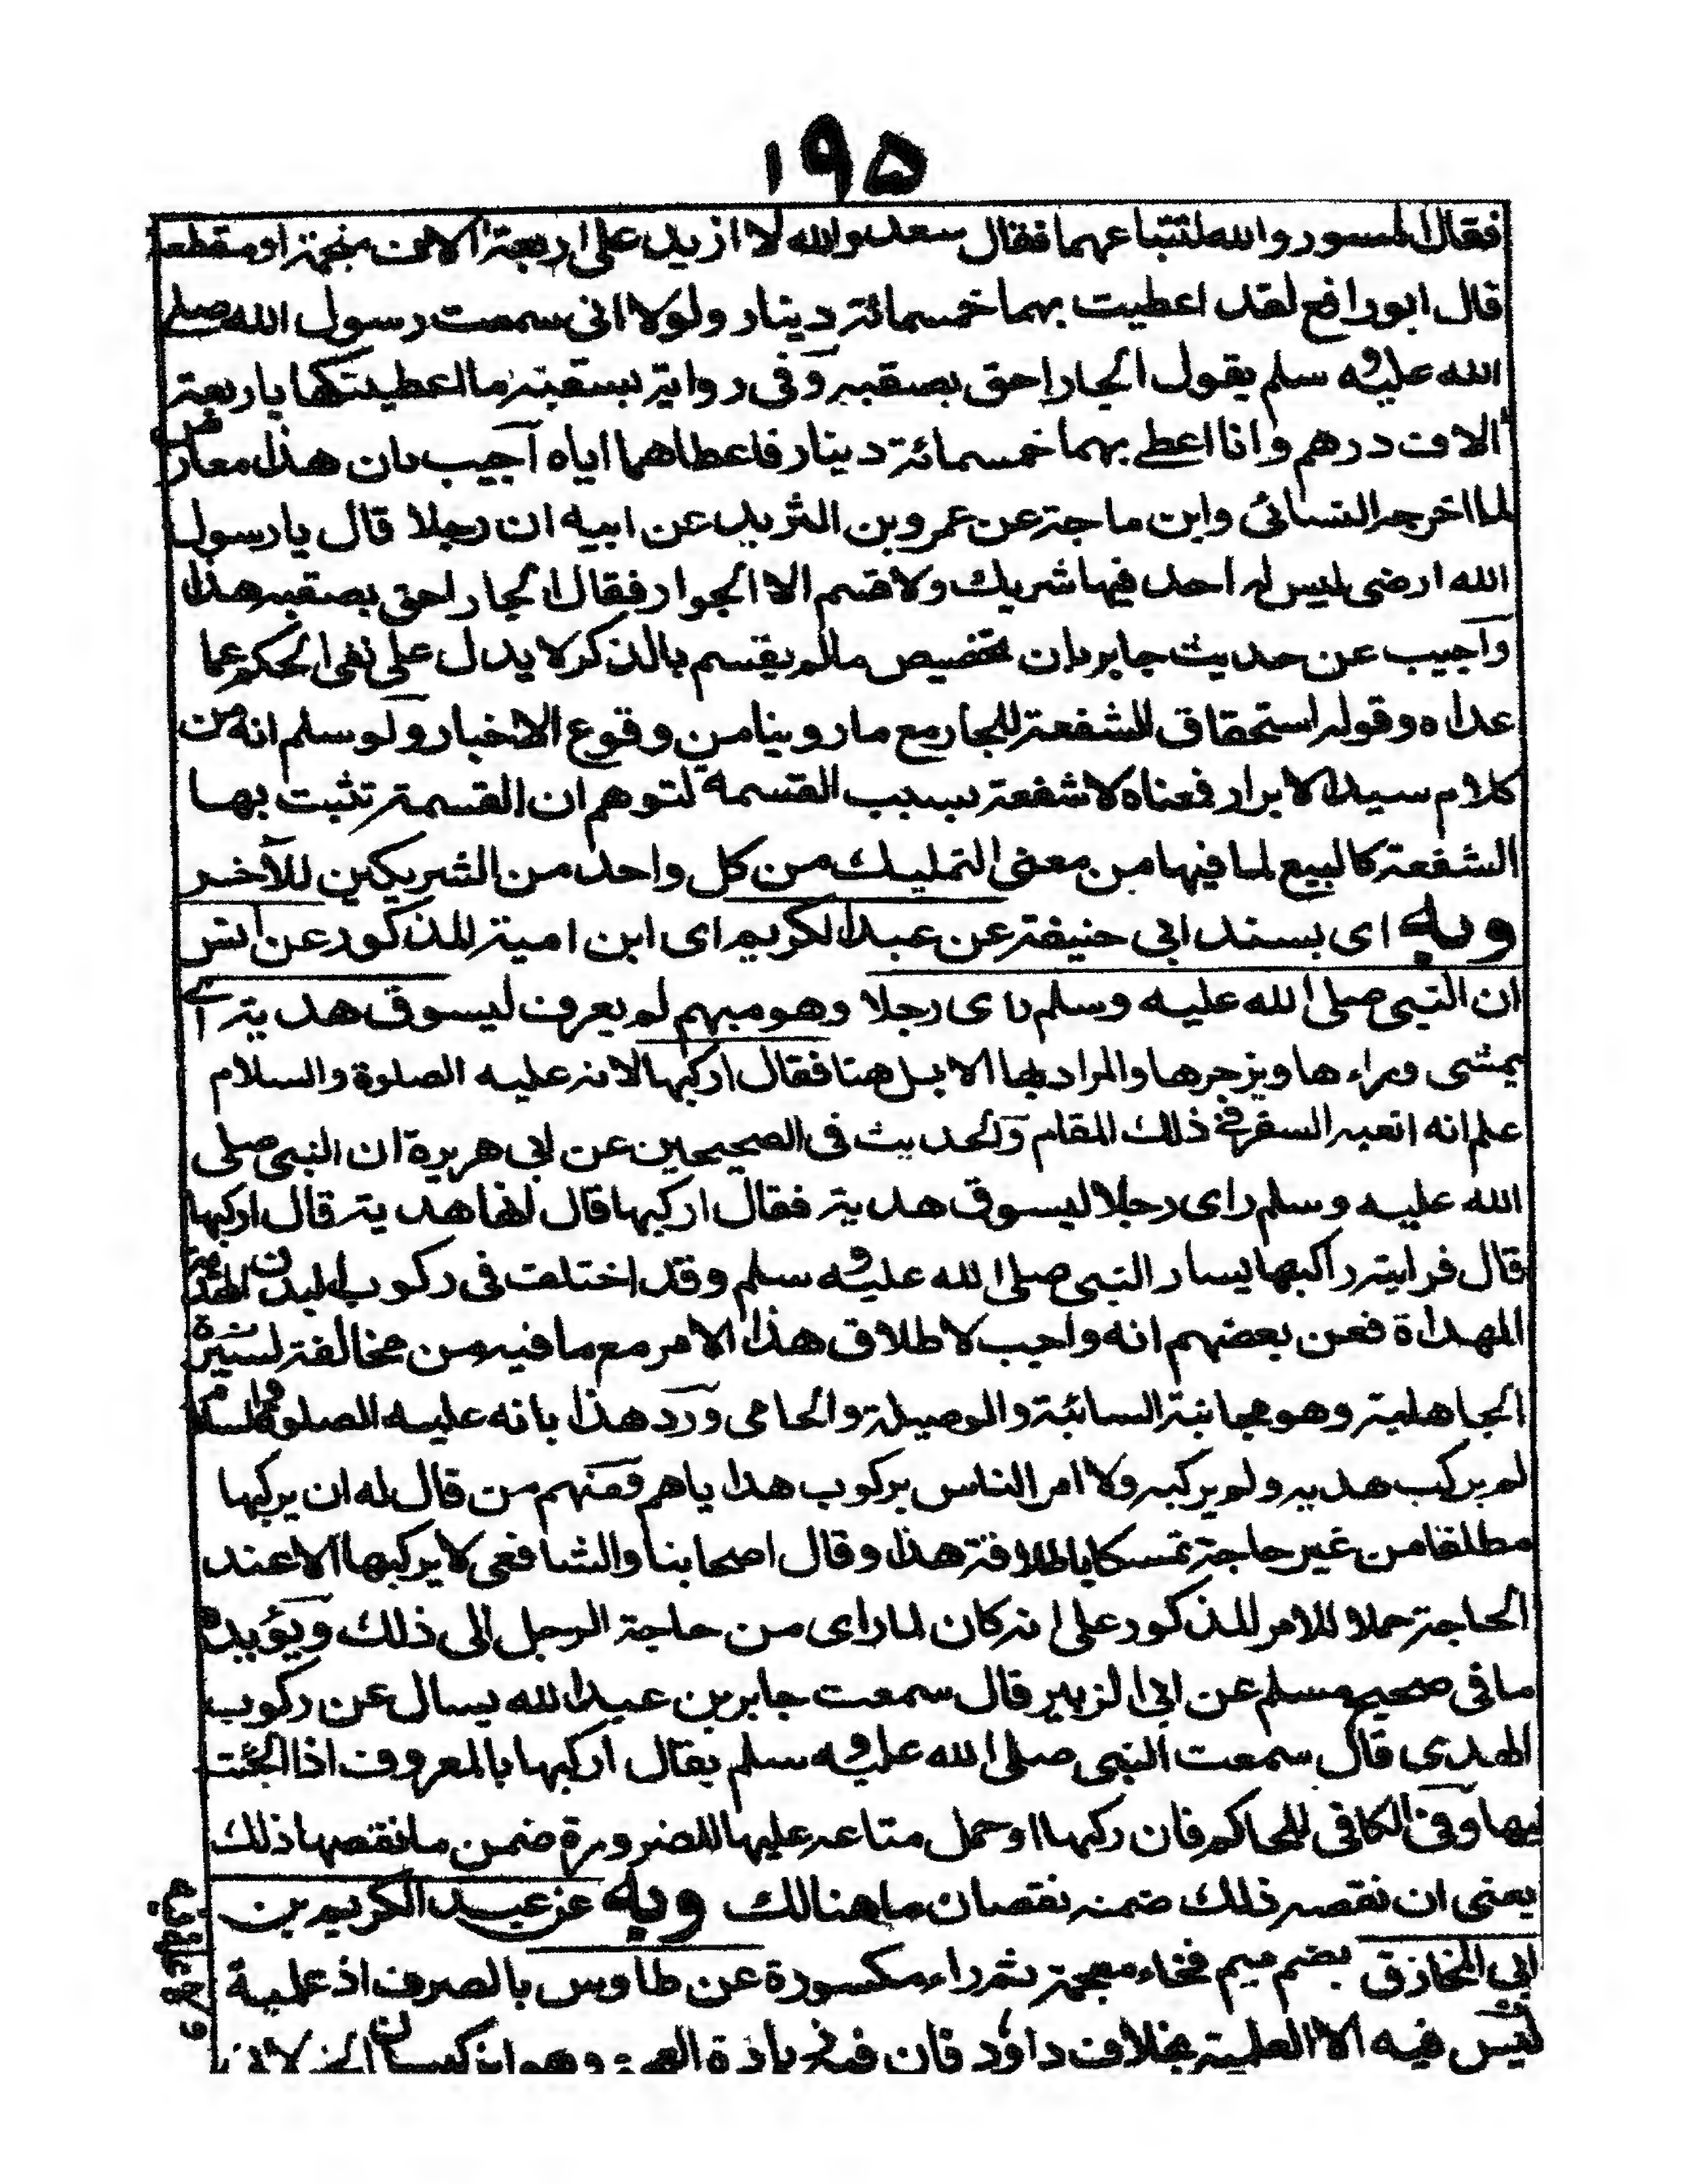 ١٩٥
فقال المسور والله لتبتاعهما فقال سعد والله لا ازيد على اربعة الاف منجمة او مقطعة
قال ابو رافع لقد اعطيت بهما خمسمائة دينار ولولا انى سمعت رسول الله صلى
الله عليه و سلم يقول الجار احق بصقبه وفى رواية بسقبه ما اعطيتكها باربعة
الاف درهم وانا اعطى بهما خمسمائة دينار فاعطاهما اياه اجيب بان هذا معارض
لما اخرجه النسائى وابن ماجة عن عمرو بن الشريد عن ابيه ان رجلا قال يا رسول
الله ارضى ليس له احد فيها شريك ولا قسم الا الجوار فقال الجار احق بصقبه هذا
واجيب عن حديث جابر بان تخصيص مالم يقسم بالذكر لا يدل على نفى الحكم عما
عداه وقوله استحقاق الشفعة للجار مع ما روينا من وقوع الاخبار ولو سلم انه من
كلام سيد الابرار فمعناه لا شفعة بسبب القسمة لتوهم ان القسمة تثبت بها
الشفعة كالبيع لما فيها من معنى التمليك من كل واحد من الشريكين للآخر
وبه اى بسند ابى حنيفة عن عبد الكريم اى ابن امية المذكور عن انس
ان النبى صلى الله عليه وسلم راى رجلا وهو مبهم لم يعرف ليسوق هدية اى
يمشى وراءها ويزجرها والمراد بها الابل هنا فقال اركبها لانه عليه الصلوة والسلام
علم انه اتعبه السفر فى ذلك المقام والحديث فى الصحيحين عن ابى هريرة ان النبى صلى
الله عليه وسلم راى رجلا ليسوق هدية فقال اركبها قال انها هدية قال اركبها
قال فرايته راكبها يساير النبى صلى الله عليه و سلم وقد اختلف فى ركوب البدن
المهداة فعن بعضهم انه واجب لاطلاق هذا الامر مع ما فيه من مخالفة لسيرة
الجاهلية وهو مجانبة السائبة والوصيلة والحامى ورد هذا بانه عليه الصلوة والسلام
لم يركب هديه ولم يركبه ولا امر الناس بركوب هداياهم فمنهم من قال له ان يركبها
مطلقا من غير حاجة تمسكا باطلاقة هذا وقال اصحابنا والشافعى لا يركبها الا عند
الحاجة حملا للامر المذكور على انه كان لما راى من حاجة الرجل الى ذلك ويؤيده
ما فى صحيح مسلم عن ابى الزبير قال سمعت جابر بن عبد الله يسال عن ركوب
الهدى قال سمعت النبى صلى الله عليه و سلم يقال اركبها بالمعروف اذا الجئت
اليها وفى الكافى للحاكم فان ركبها او حمل متاعه عليها للضرورة ضمن ما نقصها ذلك
يعنى ان نقصه ذلك ضمنه نقصان ما هنالك وبه عن عبد الكريم بن
ابى المخارق بضم ميم فخاء معجمة ثم راء مكسورة عن طاوس بالصرف اذ علمية
ليس فيه الا العلمية بخلاف داؤد فان فيه زيادة العجمة وهو ابن كيسان